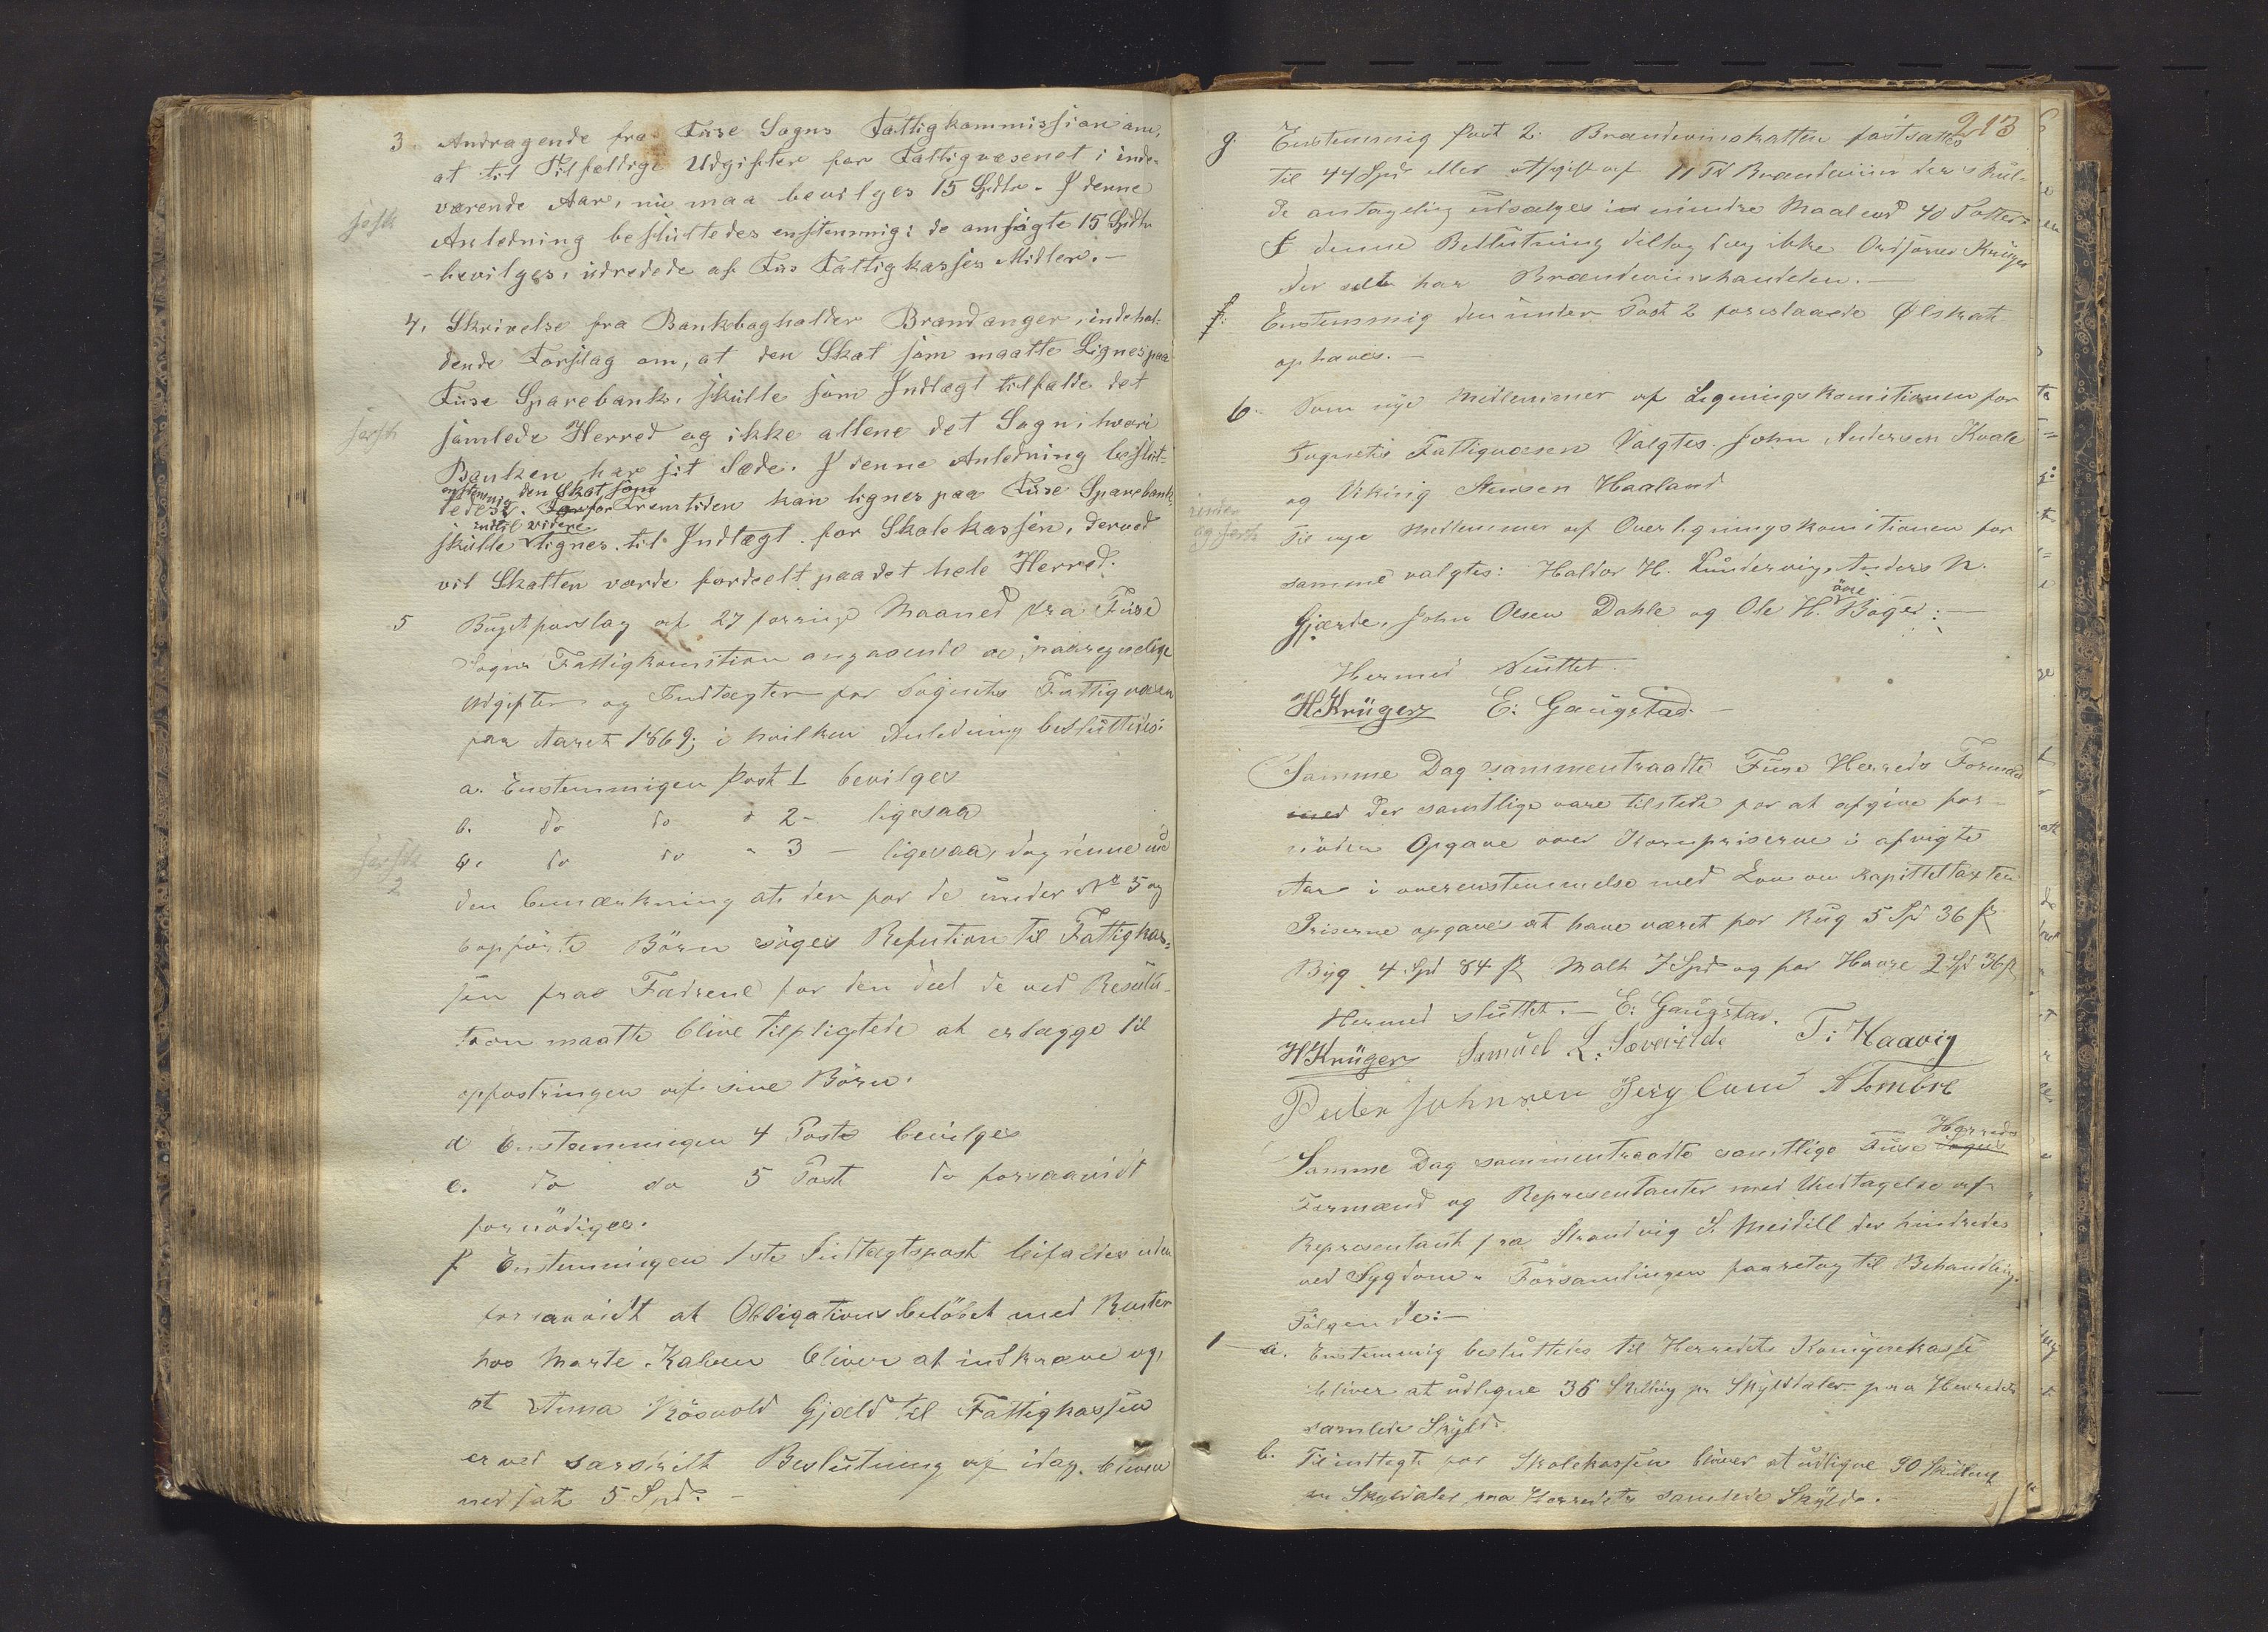 3. Andragende fra Fuse Sogns Fattigkommission om,
at til Tilfeldige Udgifter for Fattigvæsenet i inde-
værende Aar, nu maa bevilges 15 Spdlr. I denne
Anledning besluttedes enstemmig: de omsøgte 15 Spdlr
bevilges, udredede af Fus Fattigkasses Midler.-
4. Skrivelse fra Bankboghalder Brandanger, indehol-
dende Forslag om, at den Skat som maatte Lignes paa
Fuse Sparebank, skulle som Indtægt tilfalde det
samlede Herred og ikke allene det Sogn, hvori
Banken har sit Sæde. I denne Anledning beslut-
enstemmig den Skat, som
tedes: for Fremtiden kan lignes paa Fuse Sparebank,
indtil videre
skulle lignes til Indtægt for Skolekassen, derved
vil Skatten vorde fordeelt paa det hele Herred.
5 Bugetforslag af 27 forrige Maaned fra Fuse
Sogns Fattigkomition angaaende de paaregnelige
Udgifter og Indtægter for Sognets Fattigvæsen
for Aaret 1869; i hvilken Anledning besluttedes:
a. Enstemmigen Post 1 bevilges
b. do do " 2- ligesaa
c. do do " 3 - ligesaa, dog denne med
den bemærkning at der for de under No 5 og
6 opførte Børn søges Refution til Fattigkas-
sen fra Fædrene for den deel de ved Resulu-
tion maatte blive tilpligtede at erlægge til
opfostringen af sine Børn.
d Enstemmigen 4 Post bevilges
e. do do 5 Post do forsaavidt
fornødiges.
f Enstemmigen 1ste Indtægtspost bifaldes uden
forsaavidt at Obligationsbeløbet med Renter
hos Marte Kalven bliver at indkræve og,
at Anna Røsvold Gjæld til Fattigkassen
er ved særskilt Beslutning af idag bleven
nedsat 5 Spd. -
213
g. Enstemmig Post 2. Brændevinskatten fastsattes
til 44 Spd eller afgift af 11 Td Brændeviin der skul-
de antagelig udsælges i mindre Maal end 40 Potter.
I denne Beslutning deltog dog ikke Ordfører Krüger
der selv har Brændevinshandelen. -
f: Enstemmig den under Post 2 foreslaaede Ølskat
ophæves. -
6. Som nye Medlemmer af Ligningskomitionen for
Sognets Fattigvæsen Valgtes John Andersen Kvale
og Viking Stensen Haaland
Til nye Medlemmer af Overligningskomitionen for
samme valgtes: Haldor H. Lundervig, Anders N.
øvre
Gjærde, John Olsen Dahle og Ole H. Bøgei: -
Hermed sluttet.
HKrüger E: Gaugstad. -
Samme Dag sammentraadte Fuse Herreds Formænd
der samtlige vare tilstede for at afgive for-
nøden Opgave over Kornpriserne i afvigte
Aar i overenstemmelse med Lov om kapittelstaxten
Priserne opgaves at have været for Rug 5 Spd 36 ß
Byg 4 Spd 84 ß Malt 7 Spd og for Havre 2 Spd 36 ß
Hermed sluttet. - E: Gaugstad.
HKrüger Samuel L. Sævareide T: Haavig
Peder Johnsen Berglund A Tombre
Herreds
Samme Dag sammentraadte samtlige Fuse Sogns
Formænd og Representanter med Undtagelse af
Representant fra Strandvig S. Meidell der hindredes
ved Sygdom. Forsamlingen foaretog til Behandling
Følgende: -
1 - a. Enstemmig besluttedes til Herredets Komunekasse
bliver at udligne 36 Skilling pr Skylddaler paa Herredets
samlede Skyld.
b. Til indtægt for Skolekassen bliver at udligne 90 Skilling
pr Skylddaler paa Herredets samlede Skyld. -